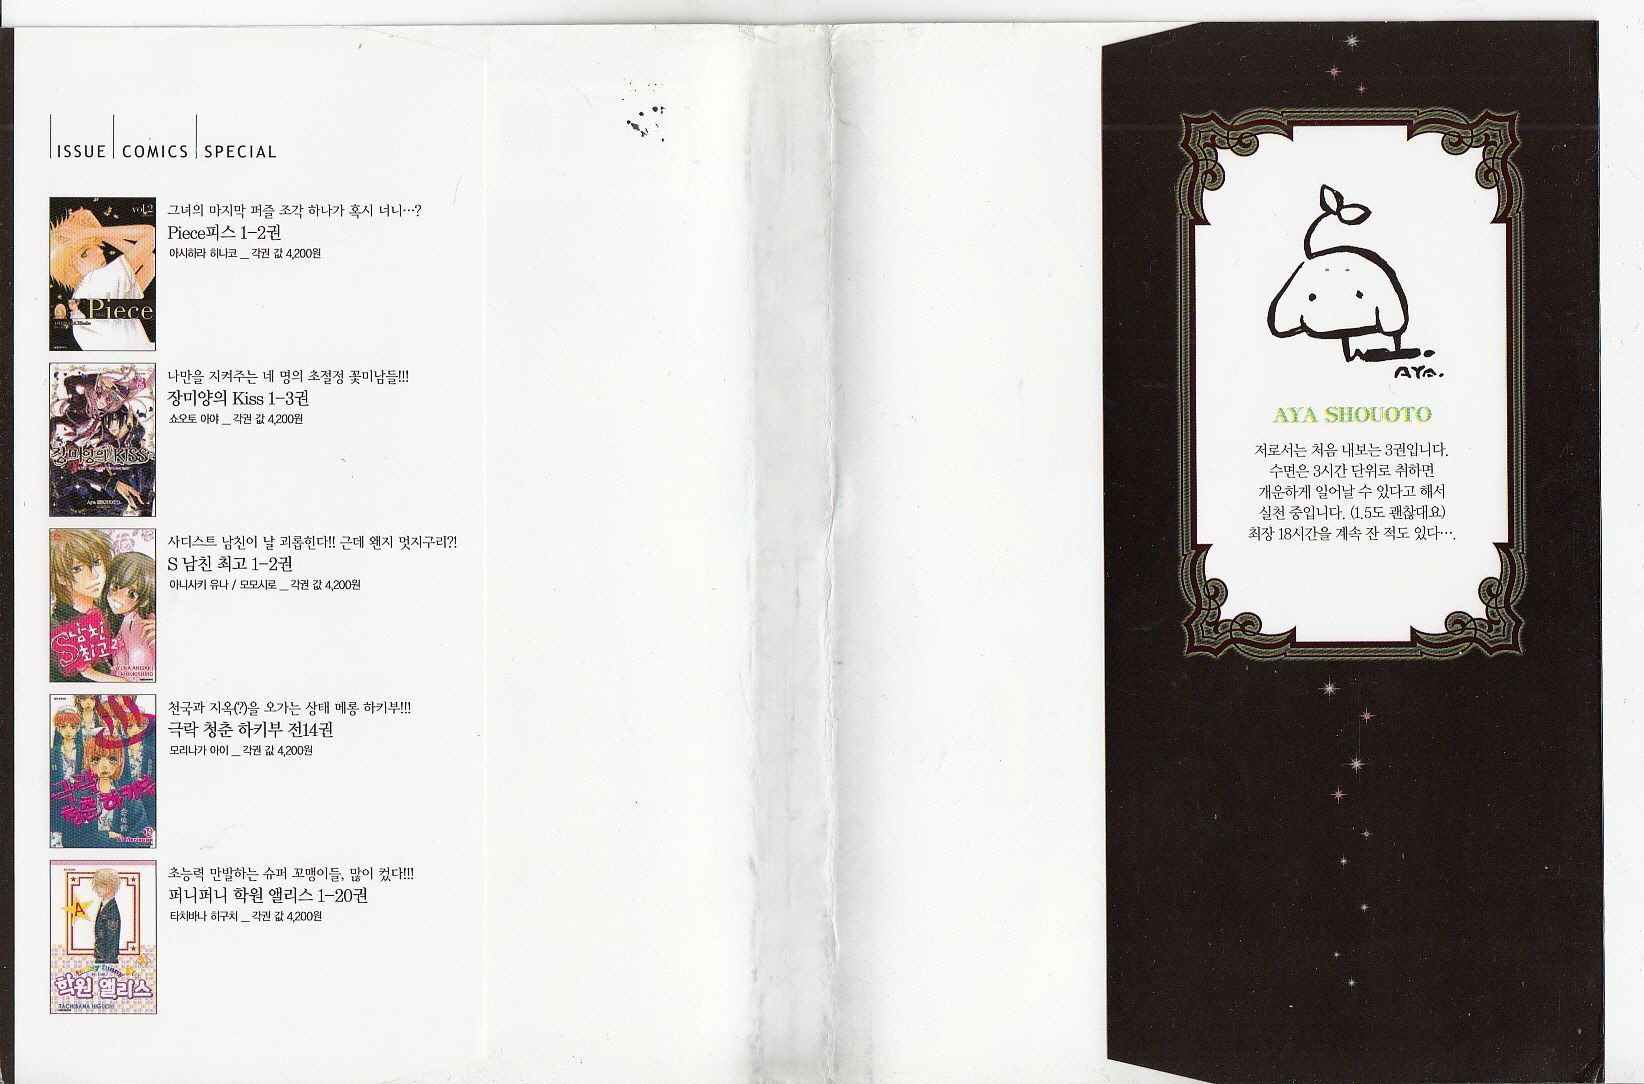 ISSUE COMICS SPECIAL
vol.2
Piece
그녀의 마지막 퍼즐 조각 하나가 혹시 너니…?
Piece피스 1-2권
아시하라 히나코 _ 각권 값 4,200원
3
장미양의 KISS
Aya SHOUOTO
나만을 지켜주는 네 명의 초절정 꽃미남들!!!
장미양의 Kiss 1-3권
쇼오토 아야 _ 각권 값 4,200원
S남친
최고 2
YUNA ANISAKI
MOMOSHIRO
사디스트 남친이 날 괴롭힌다!! 근데 왠지 멋지구리?!
S 남친 최고 1-2권
아니사키 유나 / 모모시로 _ 각권 값 4,200원
극락
청춘 하키부
14
천국과 지옥(?)을 오가는 상태 메롱 하키부!!!
극락 청춘 하키부 전14권
모리나가 아이 _ 각권 값 4,200원
A
학원 앨리스
TACHIBANA HIGUCHI
초능력 만발하는 슈퍼 꼬맹이들, 많이 컸다!!!
퍼니퍼니 학원 앨리스 1-20권
타치바나 히구치 _ 각권 값 4,200원
AYA.
AYA SHOUOTO
저로서는 처음 내보는 3권입니다.
수면은 3시간 단위로 취하면
개운하게 일어날 수 있다고 해서
실천 중입니다. (1.5도 괜찮대요)
최장 18시간을 계속 잔 적도 있다….